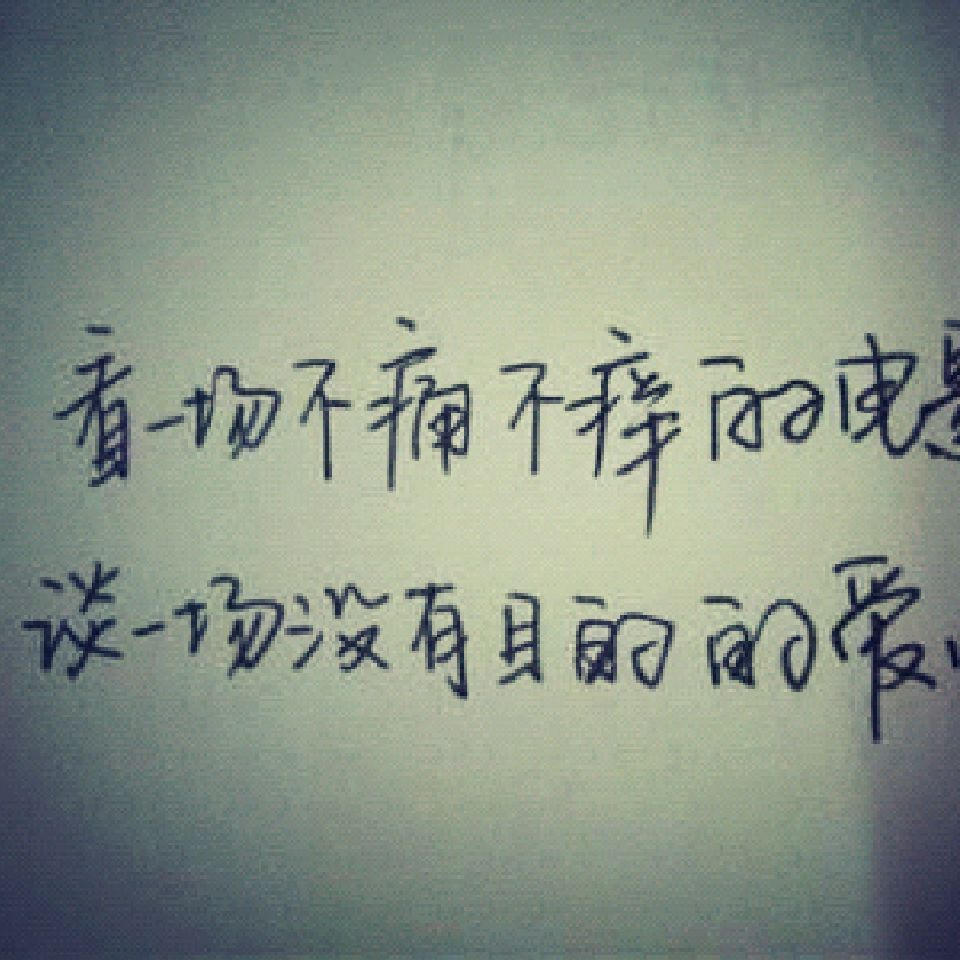 看一场不痛不痒的电影
谈一场没有目的的爱